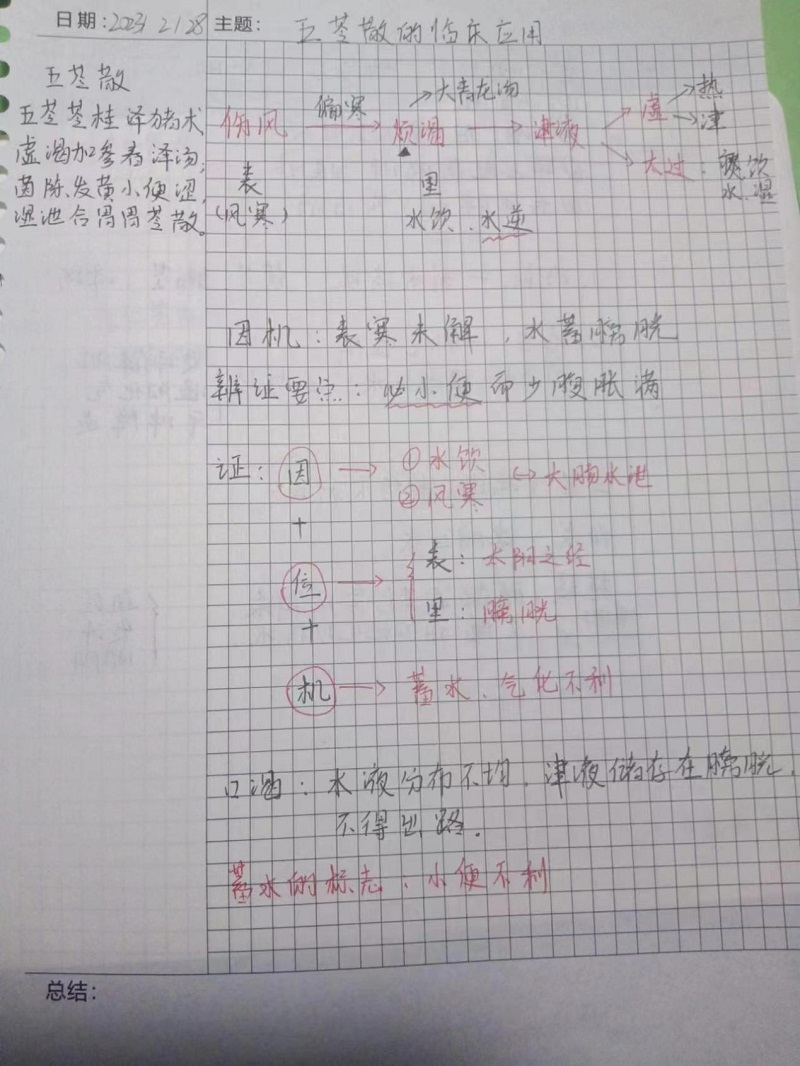 日期:2023 2/28 主题: 五苓散的临床应用
五苓散
五苓苓桂泽猪术
虚渴加参春泽汤,
茵陈发黄小便涩,
湿泄合胃胃苓散。
伤风 偏寒 → 烦渴 → 津液 → 虚 → 热
→ 津
→ 大青龙汤
→ 太过: 痰饮
水、湿
表
(风寒)
里
水饮、水逆
因机:表寒未解,水蓄膀胱
辨证要点:必小便而少腹胀满
证: 因 → ①水饮
②风寒
↪ 大肠水泄
+
位 → { 表:太阳之经
里:膀胱
+
机 → 蓄水、气化不利
口渴:水液分布不均,津液储存在膀胱,
不得出路.
蓄水的标志:小便不利
总结: